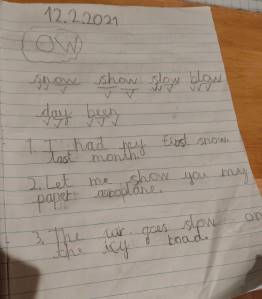 12.2.2021
OW
snow show slow blow
day been
1. I had my first snow
last month.
2. Let me show you my
paper aeroplane.
3. The car goes slow on
the icy road.